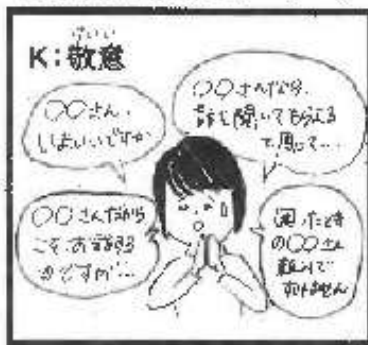 けいい
K:敬意
〇〇さん、
いまよいですか
〇〇さんなら、
話を聞いてもらえる
て思って…
〇〇さんだから
こそ、お話する
のですが…
困ったとき
の〇〇さん
頼みで
すみません